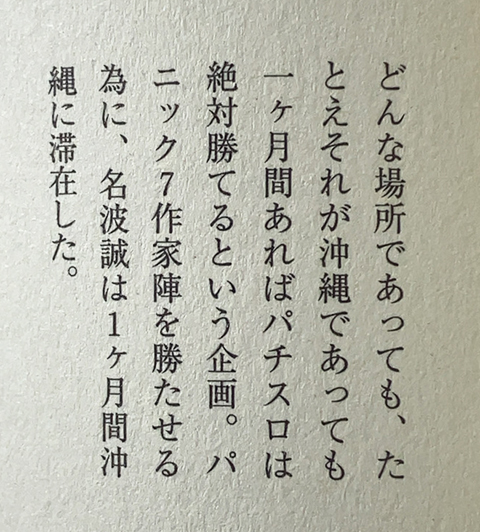 どんな場所であっても、た
とえそれが沖縄であっても
一ヶ月間あればパチスロは
絶対勝てるという企画。パ
ニック7作家陣を勝たせる
為に、名波誠は1ヶ月間沖
縄に滞在した。